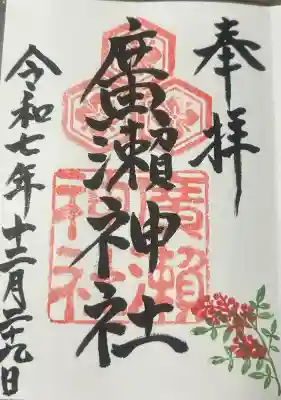 奉拝
廣瀬神社
廣瀬神社
令和七年十二月二十九日